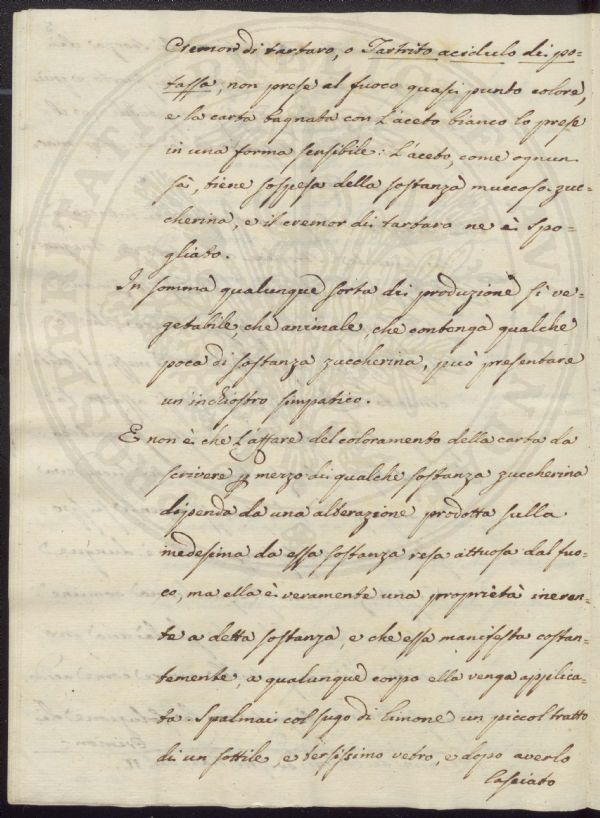 Cremor di tartaro, o Tartrito acidulo di po-
tassa, non prese al fuoco quasi punto colore,
e la carta bagnata con l'aceto bianco lo prese
in una forma sensibile: L'aceto, come ognun
sà, tiene sospesa della sostanza muccoso-zuc-
cherina, e il cremor di tartaro ne è spo-
gliato.
In somma qualunque sorta di produzione sì ve-
getabile, che animale, che contenga qualche
poca di sostanza zuccherina, può presentare
un'inchiostro simpatico.
E non è che l'affare del coloramento della carta da
scrivere p mezzo di qualche sostanza zuccherina
dipenda da una alterazione prodotta sulla
medesima da essa sostanza resa attuosa dal fuo-
co, ma ella è veramente una proprietà ineren-
te a detta sostanza, e che essa manifesta costan-
temente, a qualunque corpo ella venga applica-
ta. Spalmai col sugo di limone un piccol tratto
di un sottile, e tersissimo vetro, e dopo averlo
lasciato